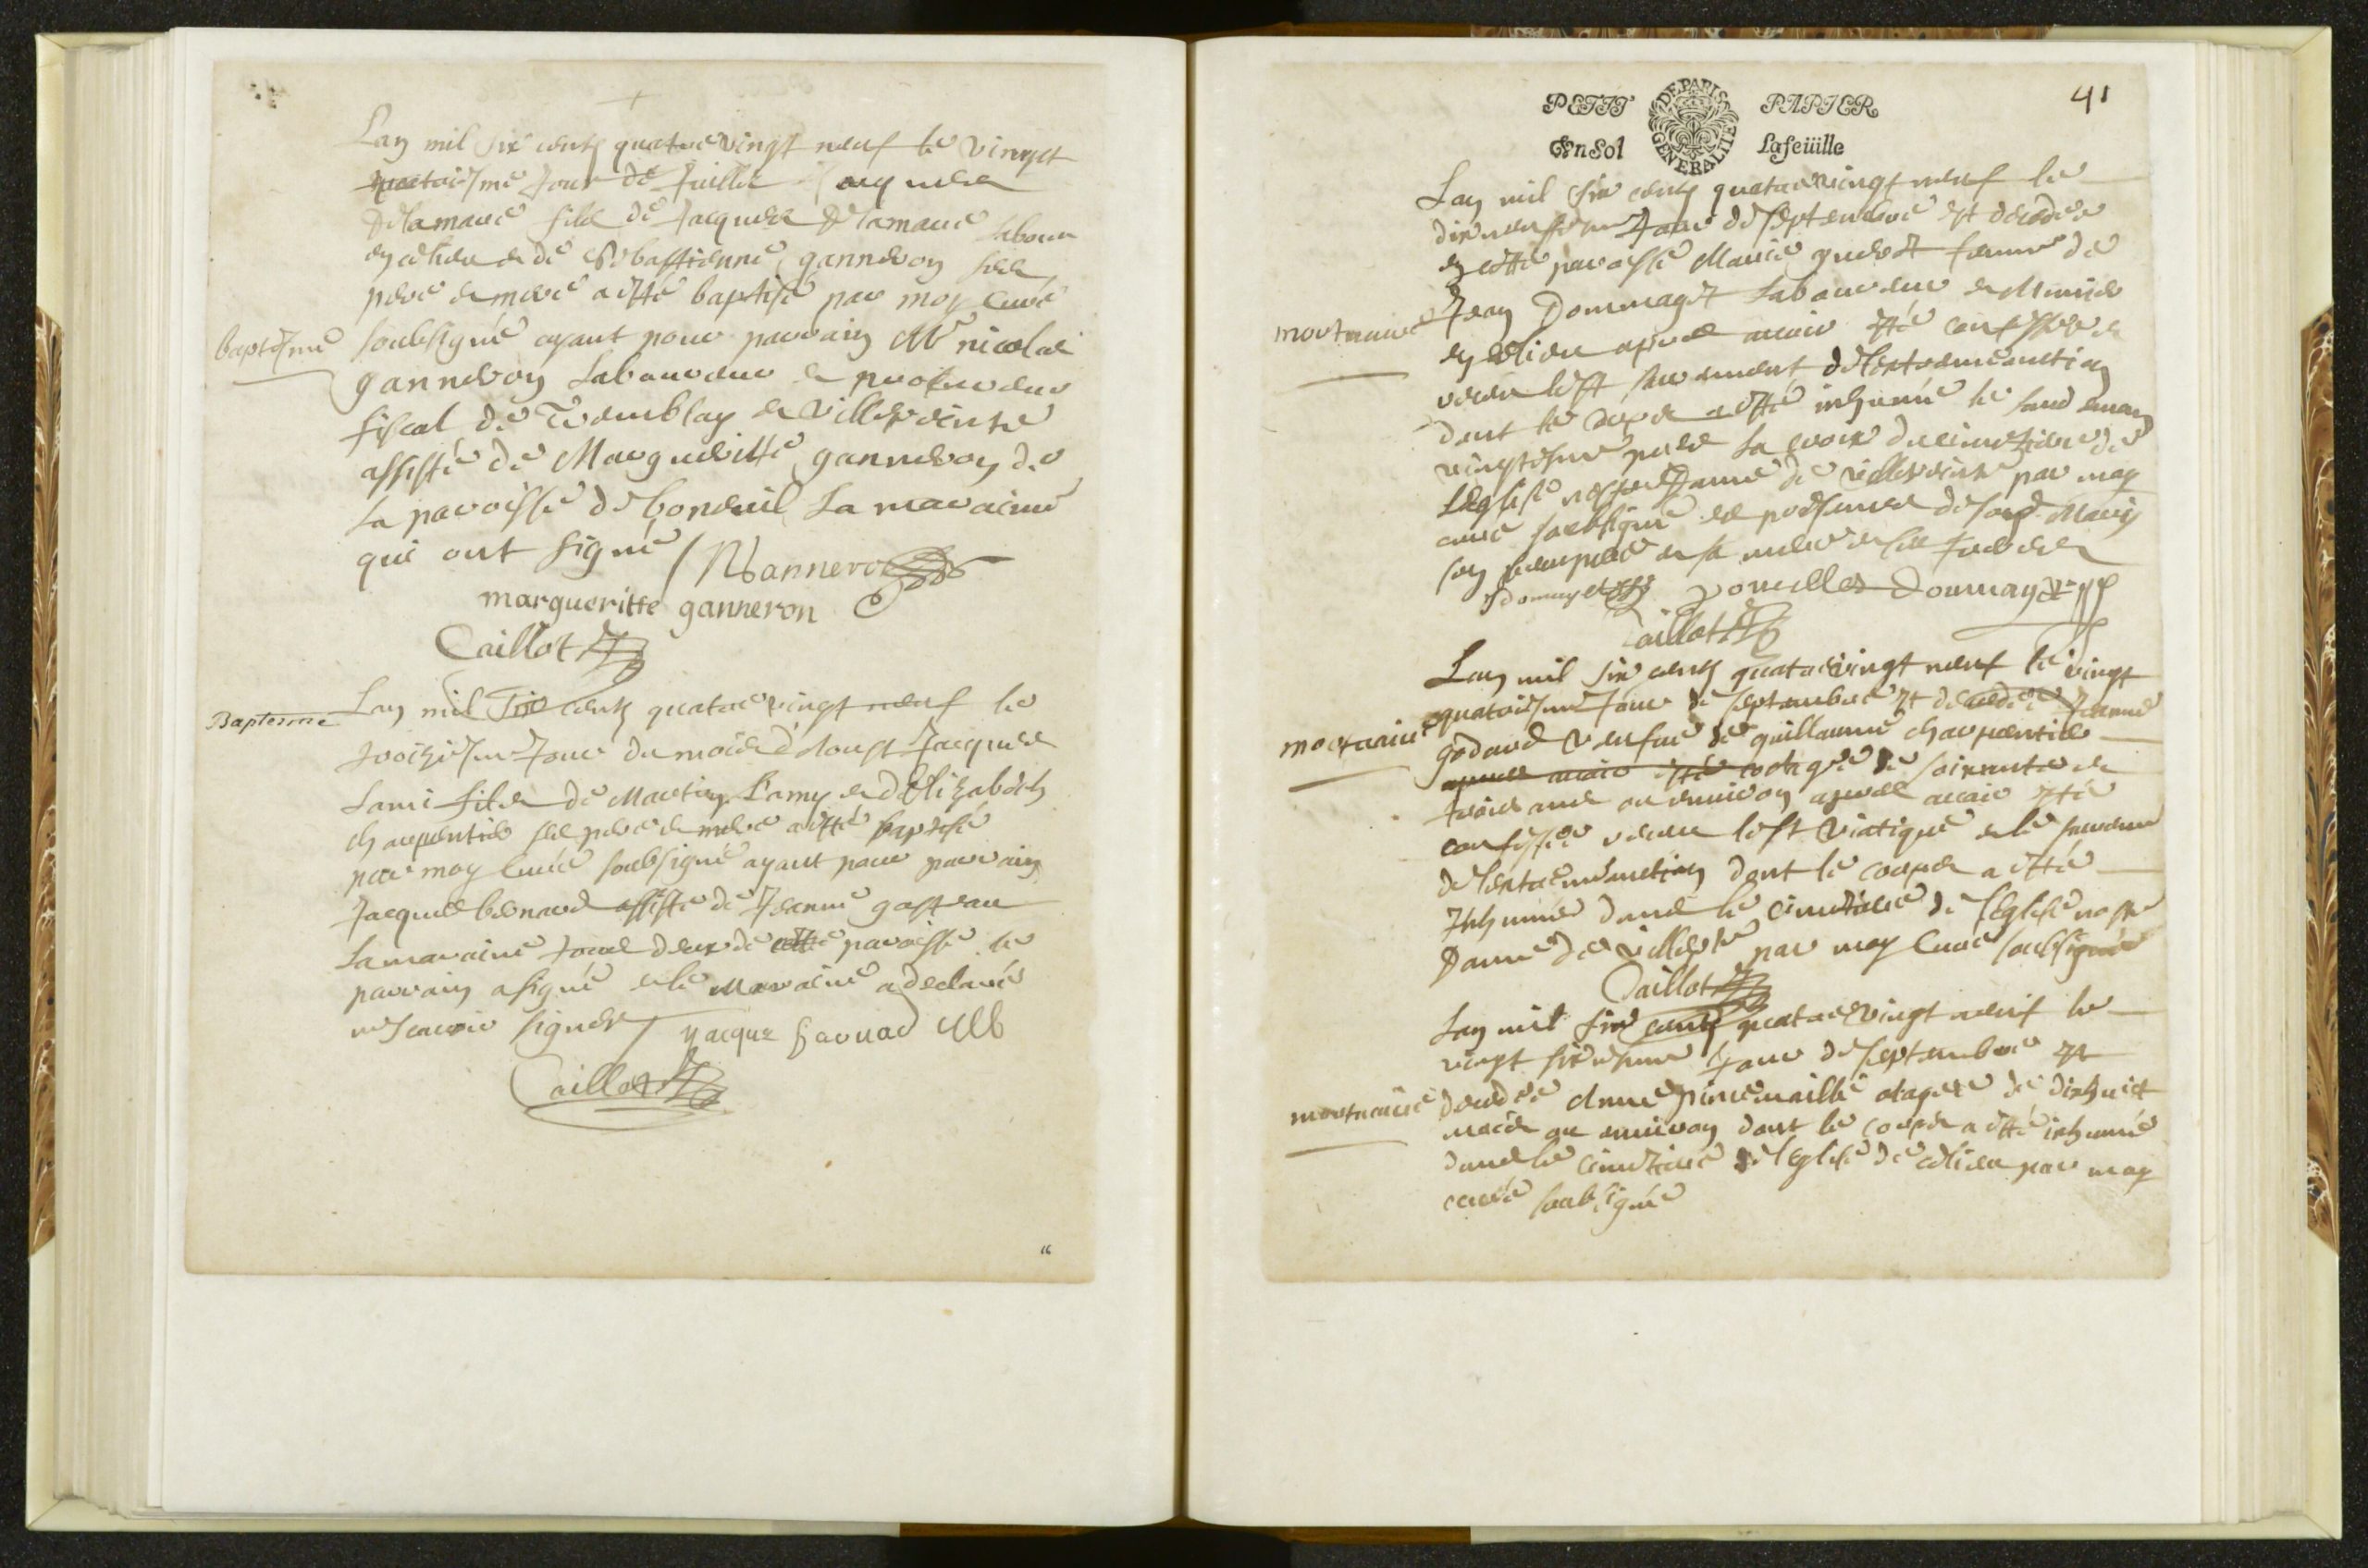 Lan mil six cents quatre vingt neuf le vingt
quatriesme Jour de Juillet Jacques
Delamare fils de Jacques Delamare labour
en ce lieu et de Sebastienne ganneron ses
pere et mere a esté baptisé par moy curé
baptesme
soubsigné ayant pour parrain Mre nicolas
ganneron laboureur et procureur
fiscal de Tremblay et Villepeinte
assisté de Margueritte ganneron de
la paroisse de boneuil la maraine
qui ont signé / N Ganneron
margueritte ganneron
Caillot
Baptesme
Lan mil six cents quatre vingt neuf le
troiziesme Jour du mois d'Aoust Jacques
Lami fils de Martin Lamy et d'Elizabeth
charpentier ses pere et mere a esté baptisé
par moy curé soubsigné ayant pour parrain
Jacques bernard assisté de Jeanne gasteau
la maraine tous deux de cette paroisse le
parrain a signé et la Maraine a declaré
ne scavoir signer /
Caillot
"
41
PETIT PAPIER
DE PARIS GENERALITE
En Sol La feüille
Lan mil six cents quatre vingt neuf le
dix neufiesme Jour de septembre est decedee
en cette paroisse Marie guerot femme de
mortuaire
Jean Dommaget laboureur et Munier
en ce lieu apres avoir esté confessee et
receu le st sacrement de lextremeonction
dont le corps a esté inhumé le lendemain
vingtiesme pres la croix du cimetiere de
leglise nostre Dame de villepeinte par moy
curé soubsigné es presences de Jean Marin
son beaupere
Caillot
Lan mil six cents quatre vingt neuf le vingt
quatriesme Jour de septembre est decedée Jeanne
mortuaire
godard veufue de guillaume charpentier
apres avoir esté aagée de soixante et
trois ans ou environ apres avoir esté
confessée receu le st viatique et le sacrem
de lextremeonction dont le corps a esté
Inhumé dans le cimetiere de leglise nostre
Dame de villepte par moy curé soubsigné
Caillot
Lan mil six cents quatre vingt neuf le
vingt sixiesme Jour de septembre est
mortuaire
decedée Anne pincemaille aagée de dixhuict
mois ou environ dont le corps a esté inhumé
dans le cimetiere de leglise de ce lieu par moy
curé soubsigné